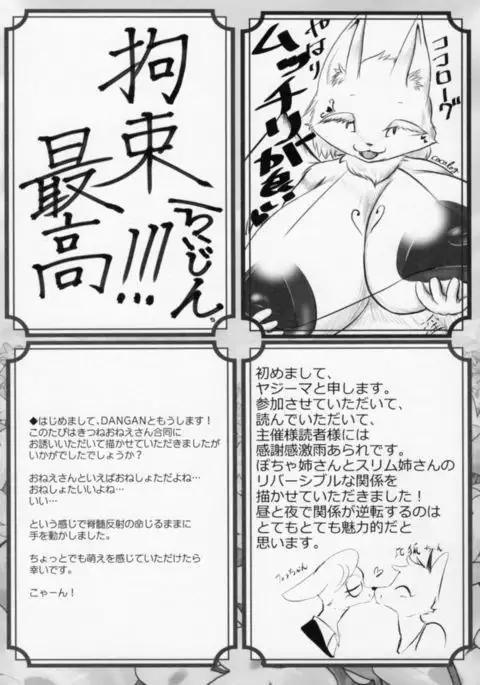 拘束
最高
!!!
ちぃじん。
ココローグ
やはり
ムッチリが良い
◆はじめまして、DANGANともうします！
このたびはきつねおねえさん合同に
お誘いいただいて描かせていただきましたが
いかがでしたでしょうか？
おねえさんといえばおねしょただよね…
おねしょたいいよね…
いい…
という感じで脊髄反射の命じるままに
手を動かしました。
ちょっとでも萌えを感じていただけたら
幸いです。
こゃーん！
初めまして、
ヤジーマと申します。
参加させていただいて、
読んでいただいて、
主催様読者様には
感謝感激雨あられです。
ぽちゃ姉さんとスリム姉さんの
リバーシブルな関係を
描かせていただきました！
昼と夜で関係が逆転するのは
とてもとても魅力的だと
思います。